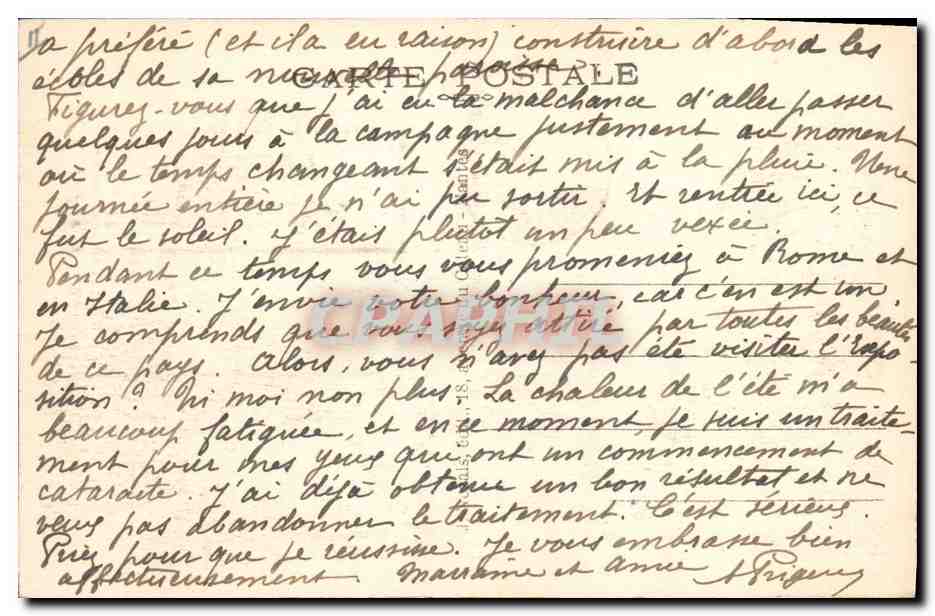 II
a préféré (et il a eu raison) construire d'abord les
écoles de sa nouvelle paroisse.
CARTE POSTALE
Figurez-vous que j'ai eu la malchance d'aller passer
quelques jours à la campagne justement au moment
où le temps changeant s'était mis à la pluie. Une
journée entière je n'ai pu sortir. Et rentrée ici, ce
fut le soleil. J'étais plutôt un peu vexée.
Pendant ce temps vous vous promeniez à Rome et
en Italie. J'envie votre bonheur, car c'en est un
Je comprends que vous soyez attiré par toutes les beautés
de ce pays. Alors, vous n'avez pas été visiter l'Expo-
sition? Ni moi non plus. La chaleur de l'été m'a
beaucoup fatiguée, et en ce moment, je suis un traite-
ment pour mes yeux qui ont un commencement de
cataracte. J'ai déjà obtenu un bon résultat et ne
veux pas abandonner le traitement. C'est sérieux.
Priez pour que je réussisse. Je vous embrasse bien
affectueusement Marraine et Amie
Nantes
CPAPHIL